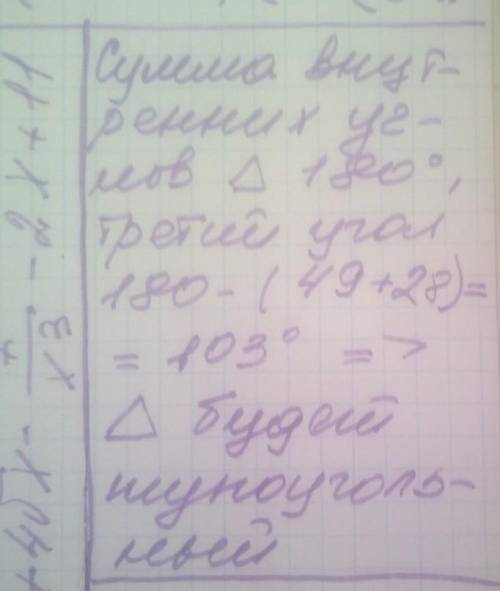 Сумма внут-
ренних уг-
лов △ 180°,
третий угол
180-(49+28)=
= 103° =>
△ будет
тупоуголь-
ный
-2x+11
x3